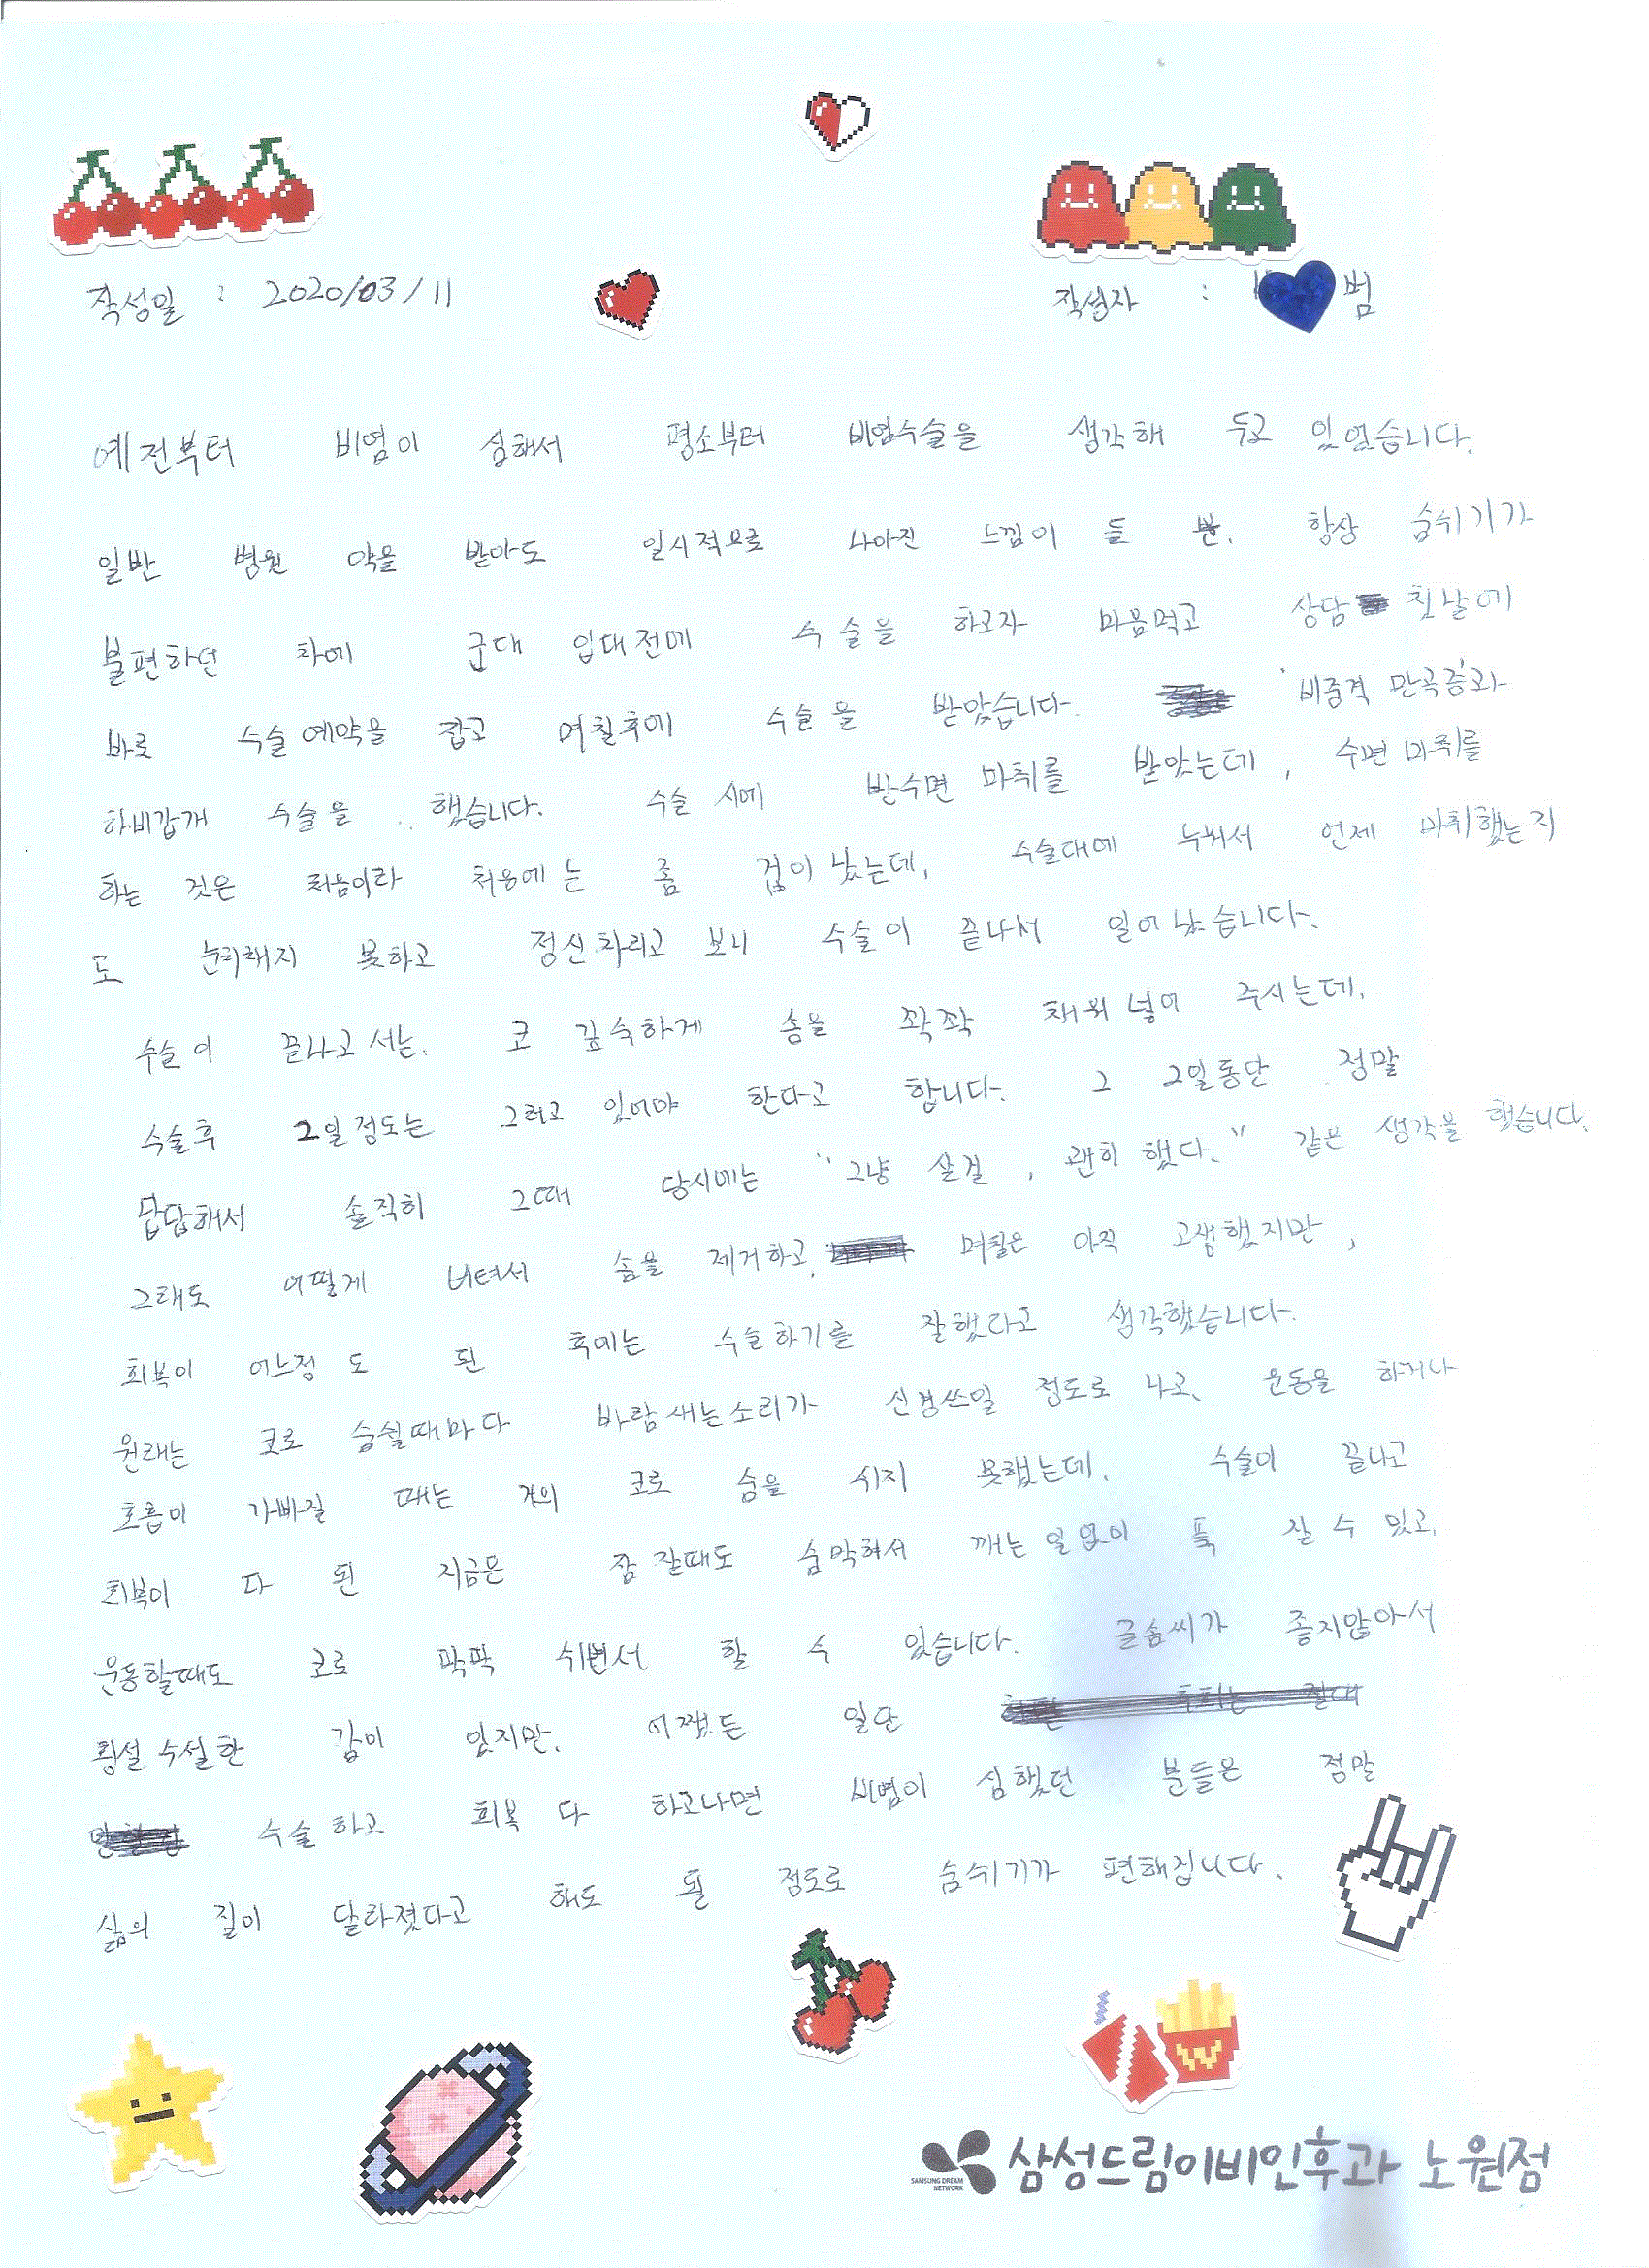 작성일 : 2020/03/11
작성자 : 범
예전부터 비염이 심해서 평소부터 비염수술을 생각해 두고 있었습니다.
일반 병원 약을 받아도 일시적으로 나아진 느낌이 들 뿐. 항상 숨쉬기가
불편하던 차에 군대 입대전에 수술을 하고자 마음먹고 상담 첫날에
바로 수술예약을 잡고 며칠후에 수술을 받았습니다. '비중격 만곡증'과
하비갑개 수술을 했습니다. 수술 시에 반수면 마취를 받았는데, 수면마취를
하는 것은 처음이라 처음에는 좀 겁이 났는데, 수술대에 누워서 언제 마취했는지
도 눈치채지 못하고 정신차리고 보니 수술이 끝나서 일어났습니다.
수술이 끝나고서는, 코 깊숙하게 솜을 꽉꽉 채워넣어 주시는데,
수술후 2일정도는 그러고 있어야 한다고 합니다. 그 2일동안 정말
답답해서 솔직히 그때 당시에는 "그냥 살걸, 괜히 했다." 같은 생각을 했습니다.
그래도 어떻게 버텨서 솜을 제거하고, 며칠은 아직 고생했지만,
회복이 어느정도 된 후에는 수술하기를 잘했다고 생각했습니다.
원래는 코로 숨쉴때마다 바람새는소리가 신경쓰일 정도로 나고, 운동을 하거나
호흡이 가빠질 때는 거의 코로 숨을 쉬지 못했는데, 수술이 끝나고
회복이 다 된 지금은 잠잘때도 숨막혀서 깨는일없이 푹 잘 수 있고,
운동할때도 코로 팍팍 쉬면서 할 수 있습니다. 글솜씨가 좋지않아서
횡설수설한 감이 있지만, 어쨌든 일단
수술하고 회복 다 하고나면 비염이 심했던 분들은 정말
삶의 질이 달라졌다고 해도 될 정도로 숨쉬기가 편해집니다.
SAMSUNG DREAM
NETWORK
삼성드림이비인후과 노원점